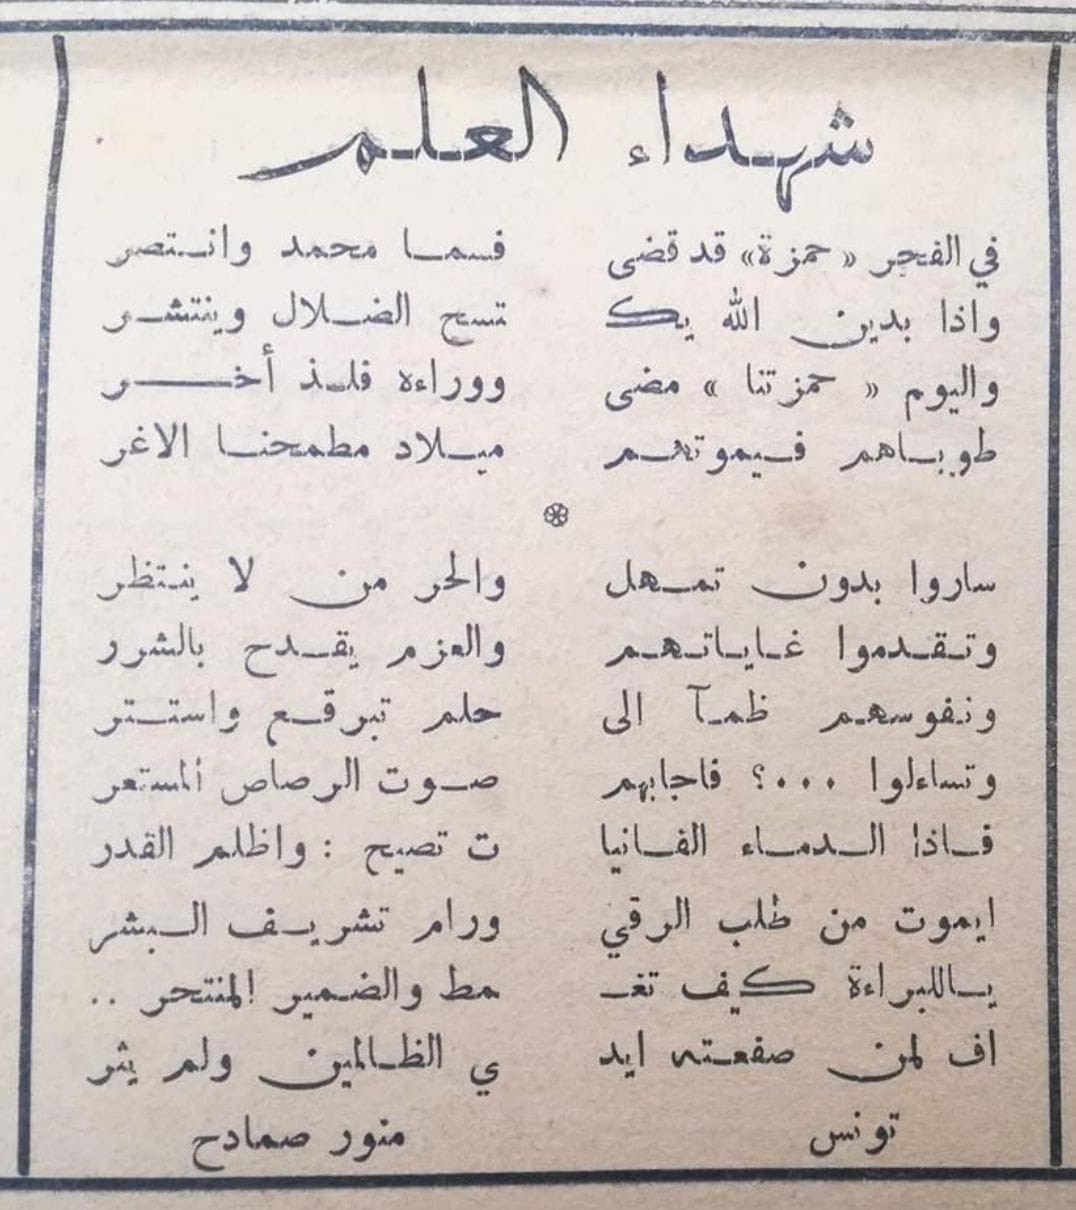 شهداء العلم
في الفجر « حمزة» قد قضى فسما محمد وانتصر
واذا بدين الله يك تسح الضلال وينتشر
واليوم « حمزتنا » مضى ووراءه فلذ أخر
طوباهم فبموتهم ميلاد مطمحنا الاغر
ساروا بدون تمهل والحر من لا ينتظر
وتقدموا غاياتهم والعزم يقدح بالشرر
ونفوسهم ظمآ الى حلم تبرقع واستتر
وتساءلوا ...؟ فاجابهم صوت الرصاص المستعر
فاذا الدماء الفانيا ت تصيح : واظلم القدر
ايموت من طلب الرقي ورام تشريف البشر
ياللبراءة كيف تغـ مط والضمير المنتحر ..
اف لمن صفعته ايد ي الظالمين ولم يثر
تونس منور صمادح